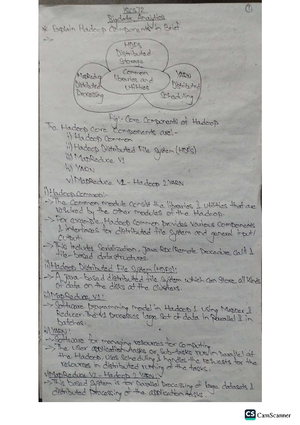 Bigdata Analytics
Explain Hadoop Components in Brief
HDFS
Distributed
Storage
MapReduce
Distributed
Processing
Common
Libraries and
Utilities
YARN
Distributed
Scheduling
Fig:- Core Components of Hadoop
The Hadoop core components are:-
i) Hadoop Common
ii) Hadoop Distributed File System (HDFS)
iii) MapReduce V1
iv) YARN
v) MapReduce V2 - Hadoop 2 YARN
i) Hadoop Common:-
-> The Common module consist the libraries & utilities that are
required by the other modules of the Hadoop.
-> For example, Hadoop Common provides various components
& interfaces for distributed file system and general input/
output.
-> This includes Serialization, Java RPC (Remote Procedure Call) &
file-based data structures.
ii) Hadoop Distributed File System (HDFS):-
-> A Java-based distributed file system which can store all kinds
of data on the disks at the clusters.
iii) MapReduce V1:-
-> Software Programming model in Hadoop 1 using Mapper &
Reducer. The V1 processes large set of data in Parallel & in
batches.
iv) YARN:-
-> Software for managing resources for computing.
-> The user application tasks or sub-tasks run in parallel at
the Hadoop, uses scheduling & handles the requests for the
resources in distributed running of the tasks.
v) MapReduce V2 - Hadoop 2 YARN:-
-> This based system is for parallel processing of large datasets &
distributed processing of the application tasks.
CS CamScanner